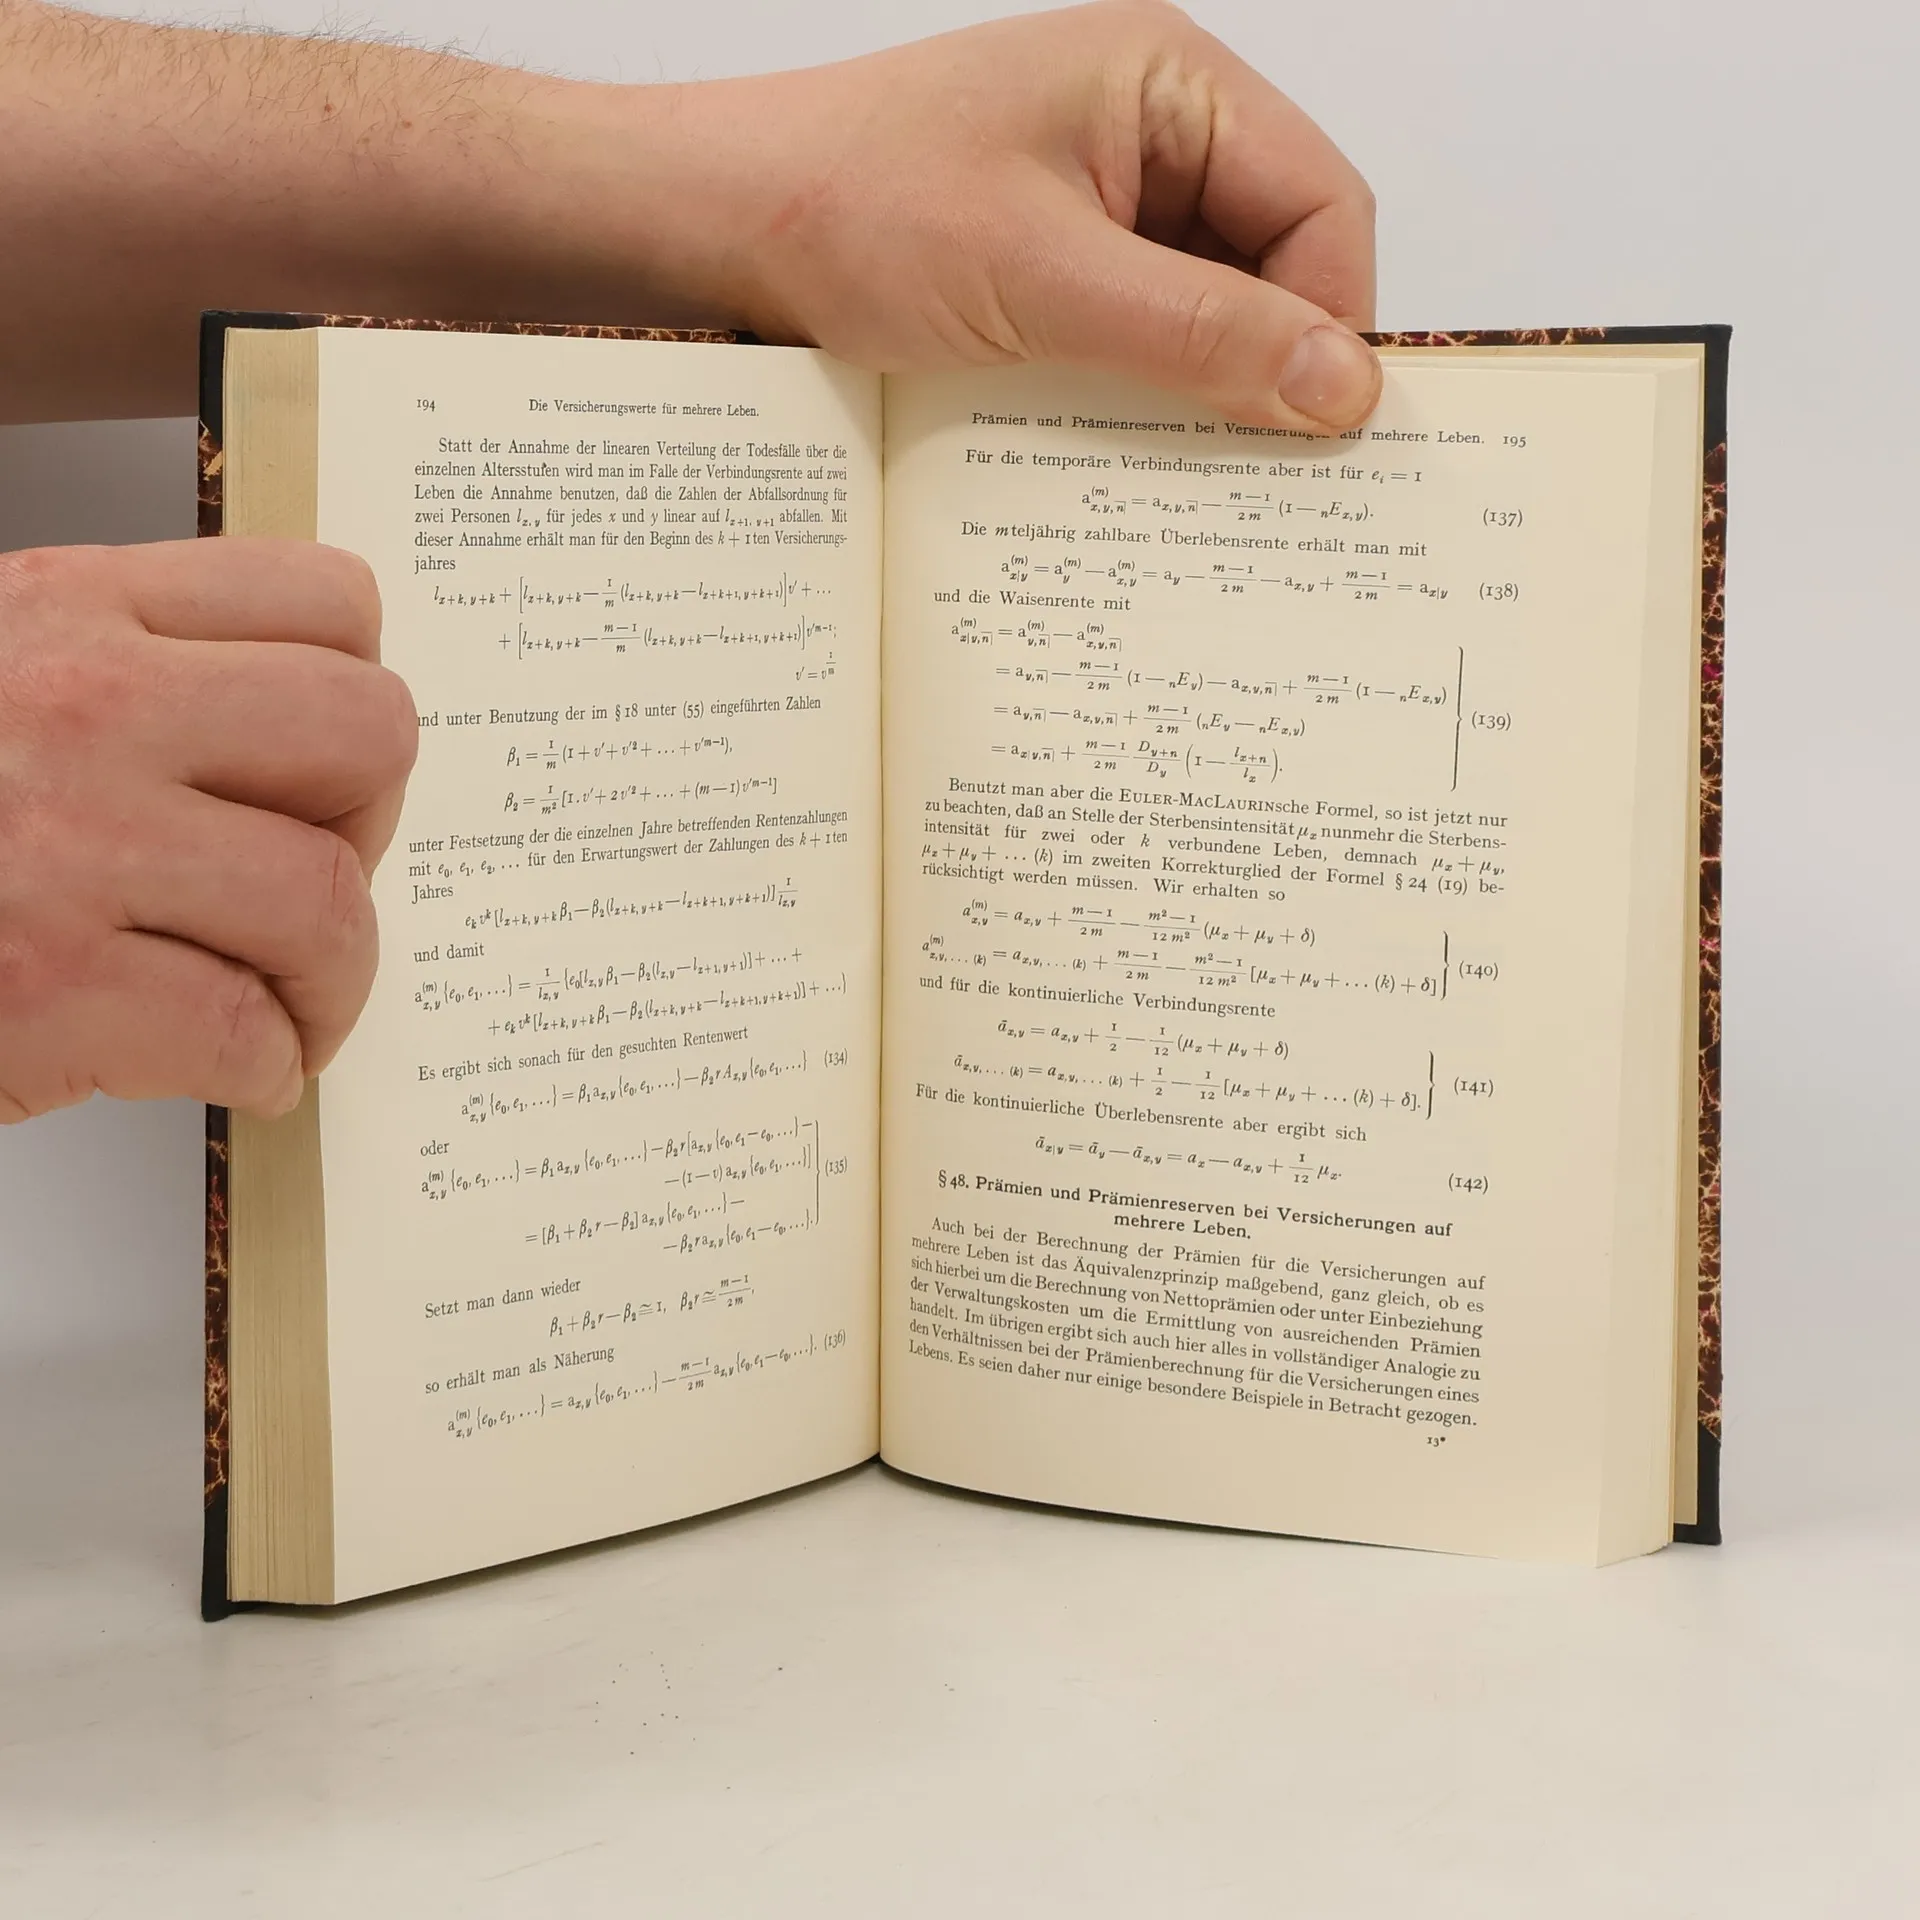 194 Die Versicherungswerte für mehrere Leben.
Statt der Annahme der linearen Verteilung der Todesfälle über die
einzelnen Altersstufen wird man im Falle der Verbindungsrente auf zwei
Leben die Annahme benutzen, daß die Zahlen der Abfallsordnung für
zwei Personen l_{x, y} für jedes x und y linear auf l_{x+1, y+1} abfallen. Mit
dieser Annahme erhält man für den Beginn des k + 1ten Versicherungs-
jahres
l_{x+k, y+k} + [l_{x+k, y+k} — 1/m (l_{x+k, y+k} — l_{x+k+1, y+k+1})] v′ + ...
+ [l_{x+k, y+k} — (m—1)/m (l_{x+k, y+k} — l_{x+k+1, y+k+1})] v′^{m-1};
v′ = v^{1/m}
und unter Benutzung der im § 18 unter (55) eingeführten Zahlen
β₁ = 1/m (1 + v′ + v′² + ... + v′^{m-1}),
β₂ = 1/m² [1 . v′ + 2 v′² + ... + (m — 1) v′^{m-1}]
unter Festsetzung der die einzelnen Jahre betreffenden Rentenzahlungen
mit e₀, e₁, e₂, ... für den Erwartungswert der Zahlungen des k + 1ten
Jahres
e_k v^k [l_{x+k, y+k} β₁ — β₂ (l_{x+k, y+k} — l_{x+k+1, y+k+1})] 1/l_{x,y}
und damit
a^{(m)}_{x, y} {e₀, e₁, ...} = 1/l_{x, y} {e₀[l_{x, y} β₁ — β₂(l_{x, y} — l_{x+1, y+1})] + ... +
+ e_k v^k [l_{x+k, y+k} β₁ — β₂(l_{x+k, y+k} — l_{x+k+1, y+k+1})] + ...}
Es ergibt sich sonach für den gesuchten Rentenwert
a^{(m)}_{x, y} {e₀, e₁, ...} = β₁ a_{x, y} {e₀, e₁, ...} — β₂ r A_{x, y} {e₀, e₁, ...} (134)
oder
a^{(m)}_{x, y} {e₀, e₁, ...} = β₁ a_{x, y} {e₀, e₁, ...} — β₂ r [a_{x, y} {e₀, e₁ — e₀, ...} —
— (1 — v) a_{x, y} {e₀, e₁, ...}] (135)
= [β₁ + β₂ r — β₂] a_{x, y} {e₀, e₁, ...} —
— β₂ r a_{x, y} {e₀, e₁ — e₀, ...}.
Setzt man dann wieder
β₁ + β₂ r — β₂ ≅ 1, β₂ r ≅ (m — 1)/(2 m),
so erhält man als Näherung
a^{(m)}_{x, y} {e₀, e₁, ...} = a_{x, y} {e₀, e₁, ...} — (m — 1)/(2 m) a_{x, y} {e₀, e₁ — e₀, ...}. (136)
Prämien und Prämienreserven bei Versicherungen auf mehrere Leben. 195
Für die temporäre Verbindungsrente aber ist für e_i = 1
a^{(m)}_{x, y, n̅|} = a_{x, y, n̅|} — (m — 1)/(2 m) (1 — ₙE_{x, y}). (137)
Die mteljährig zahlbare Überlebensrente erhält man mit
a^{(m)}_{x|y} = a^{(m)}_{y} — a^{(m)}_{x, y} = a_y — (m — 1)/(2 m) — a_{x, y} + (m — 1)/(2 m) = a_{x|y} (138)
und die Waisenrente mit
a^{(m)}_{x|y, n̅|} = a^{(m)}_{y, n̅|} — a^{(m)}_{x, y, n̅|}
= a_{y, n̅|} — (m — 1)/(2 m) (1 — ₙE_y) — a_{x, y, n̅|} + (m — 1)/(2 m) (1 — ₙE_{x, y})
= a_{y, n̅|} — a_{x, y, n̅|} + (m — 1)/(2 m) (ₙE_y — ₙE_{x, y}) (139)
= a_{x|y, n̅|} + (m — 1)/(2 m) D_{y+n}/D_y (1 — l_{x+n}/l_x).
Benutzt man aber die EULER-MACLAURINsche Formel, so ist jetzt nur
zu beachten, daß an Stelle der Sterbensintensität μ_x nunmehr die Sterbens-
intensität für zwei oder k verbundene Leben, demnach μ_x + μ_y,
μ_x + μ_y + ... (k) im zweiten Korrekturglied der Formel § 24 (19) be-
rücksichtigt werden müssen. Wir erhalten so
a^{(m)}_{x, y} = a_{x, y} + (m — 1)/(2 m) — (m² — 1)/(12 m²) (μ_x + μ_y + δ)
a^{(m)}_{x, y, ... (k)} = a_{x, y, ... (k)} + (m — 1)/(2 m) — (m² — 1)/(12 m²) [μ_x + μ_y + ... (k) + δ] (140)
und für die kontinuierliche Verbindungsrente
ā_{x, y} = a_{x, y} + 1/2 — 1/12 (μ_x + μ_y + δ)
ā_{x, y, ... (k)} = a_{x, y, ... (k)} + 1/2 — 1/12 [μ_x + μ_y + ... (k) + δ]. (141)
Für die kontinuierliche Überlebensrente aber ergibt sich
ā_{x|y} = ā_y — ā_{x, y} = a_x — a_{x, y} + 1/12 μ_x. (142)
§ 48. Prämien und Prämienreserven bei Versicherungen auf
mehrere Leben.
Auch bei der Berechnung der Prämien für die Versicherungen auf
mehrere Leben ist das Äquivalenzprinzip maßgebend, ganz gleich, ob es
sich hierbei um die Berechnung von Nettoprämien oder unter Einbeziehung
der Verwaltungskosten um die Ermittlung von ausreichenden Prämien
handelt. Im übrigen ergibt sich auch hier alles in vollständiger Analogie zu
den Verhältnissen bei der Prämienberechnung für die Versicherungen eines
Lebens. Es seien daher nur einige besondere Beispiele in Betracht gezogen.
13*